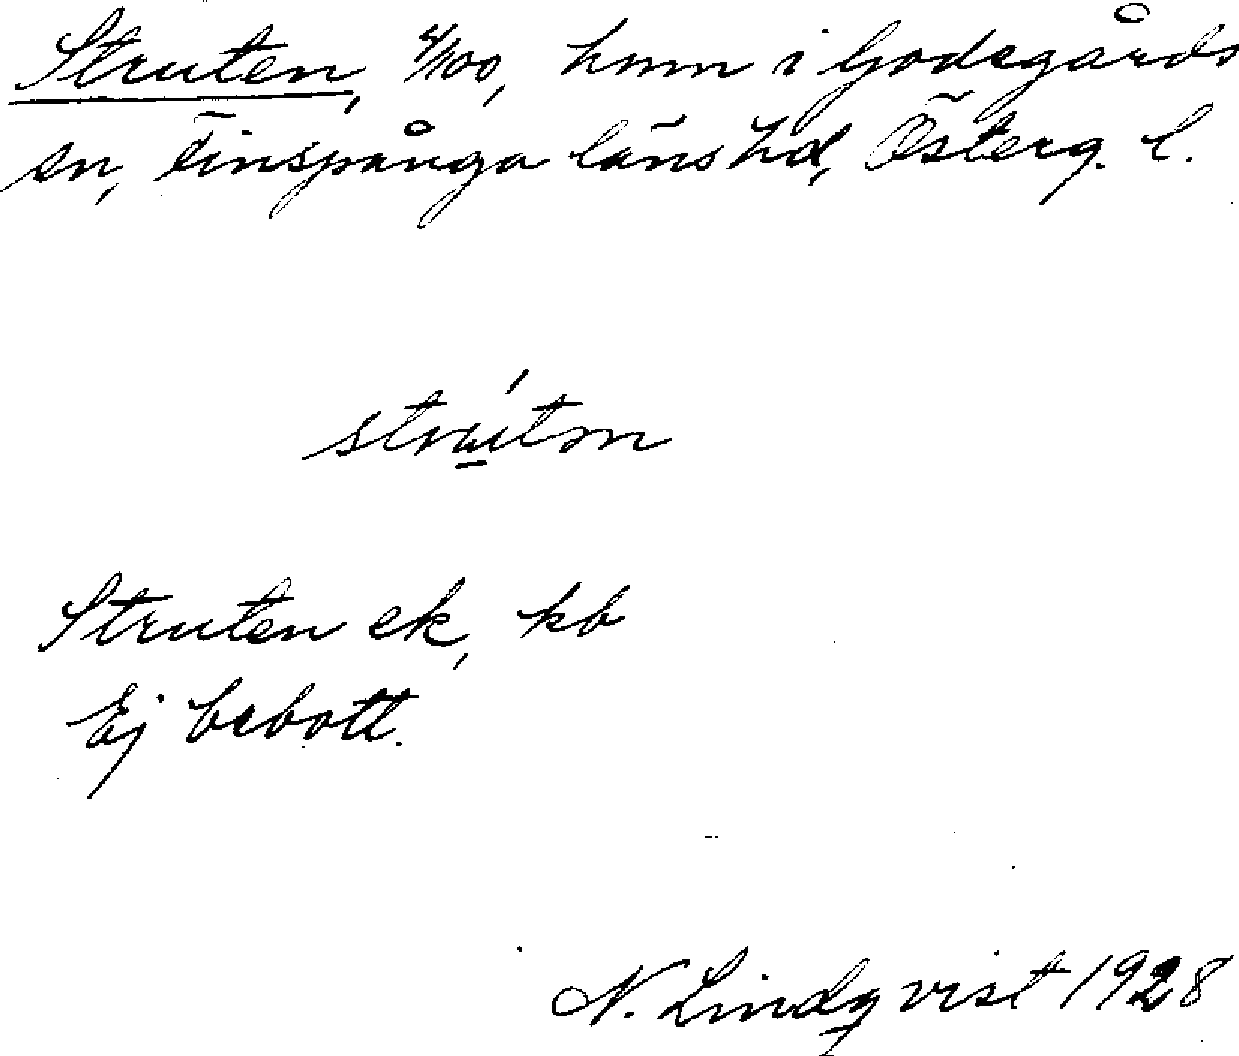 Struten, 4/100, hmn i Godegårds
sn, Finspånga läns hd, Österg. l.
strútn
Struten ek, kb
Ej bebott.
N. Lindqvist 1928